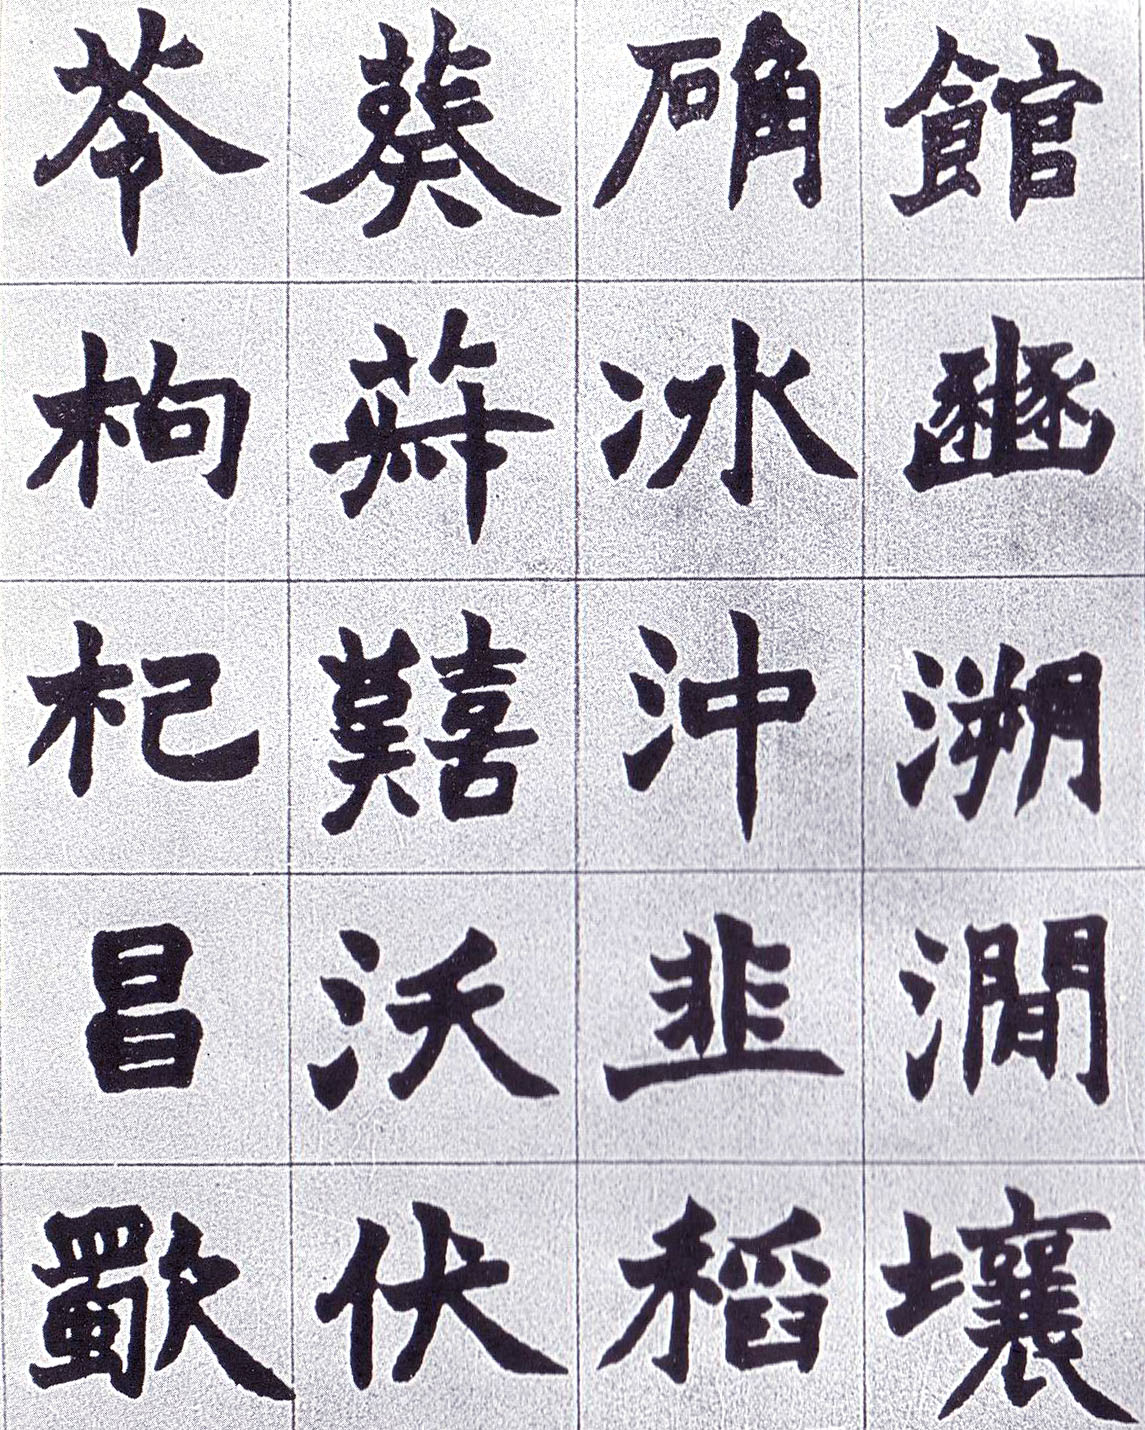 館豳溯澗壤
确冰沖韭稻
葵囏沃伏
苓枸杞昌歜